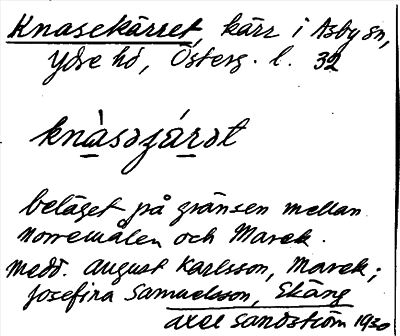 Knasekärret, kärr i Asby sn,
Ydre hd, Österg. l. 32
knàsəɟárət
beläget på gränsen mellan
Norremålen och Marek.
Medd. August Karlsson, Marek;
Josefina Samuelsson, Ekäng
Axel Sandström 1930